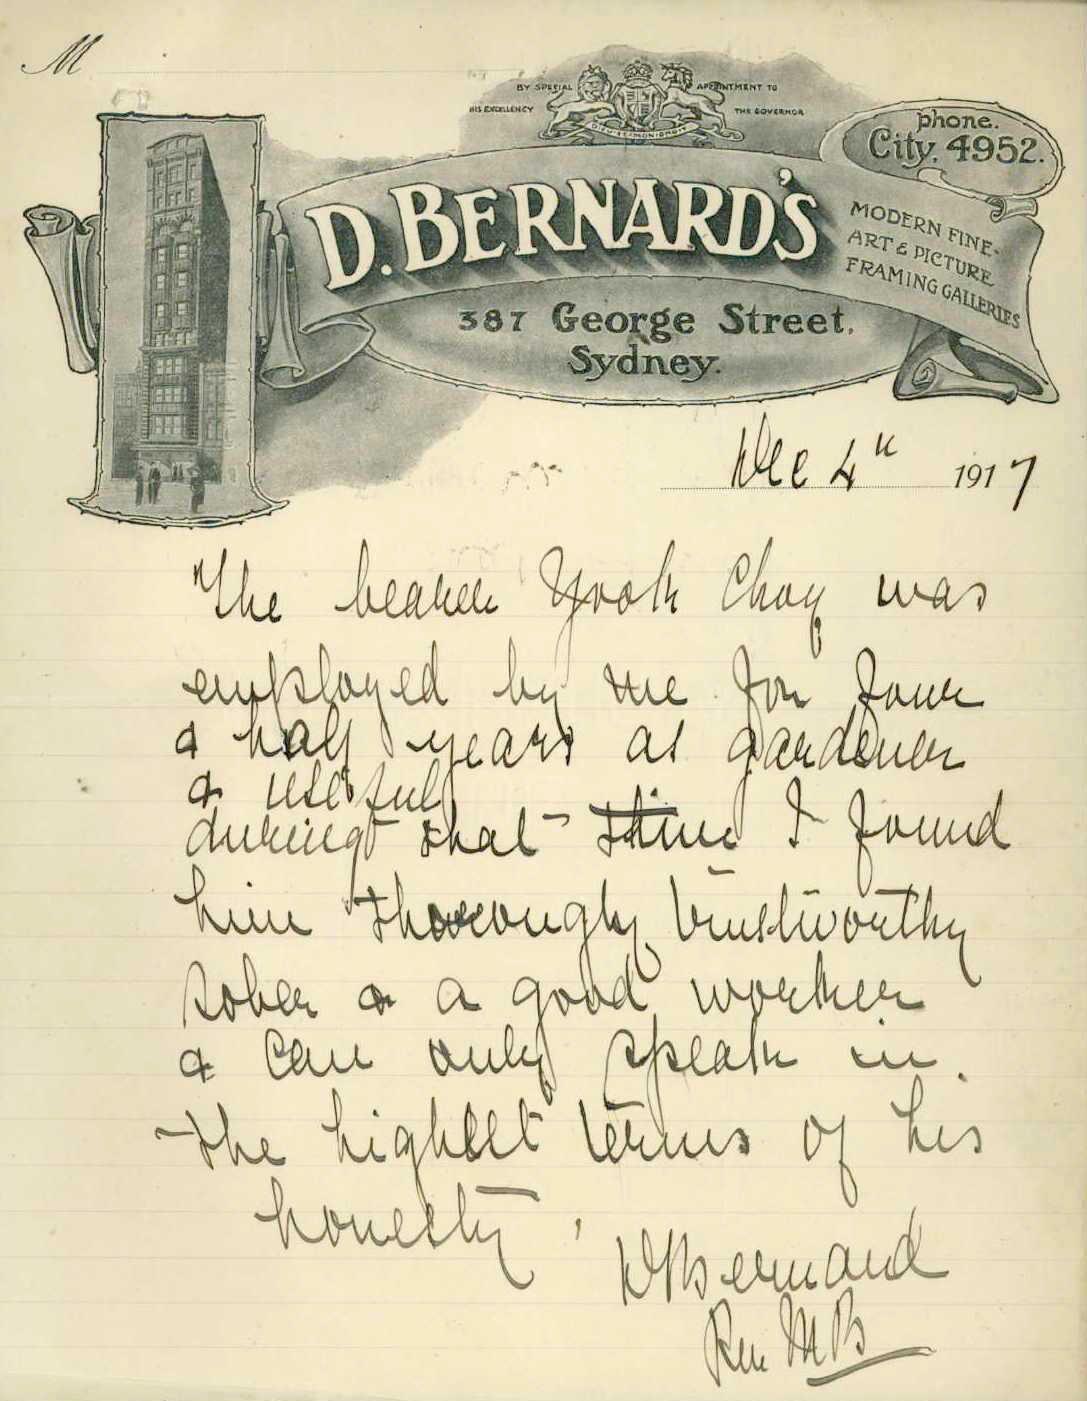 M
BY SPECIAL APPOINTMENT TO
HIS EXCELLENCY THE GOVERNOR
DIEU ET MON DROIT
phone.
City. 4952.
D. BERNARD'S
MODERN FINE-
ART & PICTURE
FRAMING GALLERIES
387 George Street,
Sydney.
Dec 4th 1917
The bearer Yook Choy was
employed by me for four
& half years as gardener
& useful
during that time I found
him thoroughly trustworthy
sober & a good worker
& can only speak in
the highest terms of his
honesty.
D Bernard
Per MB